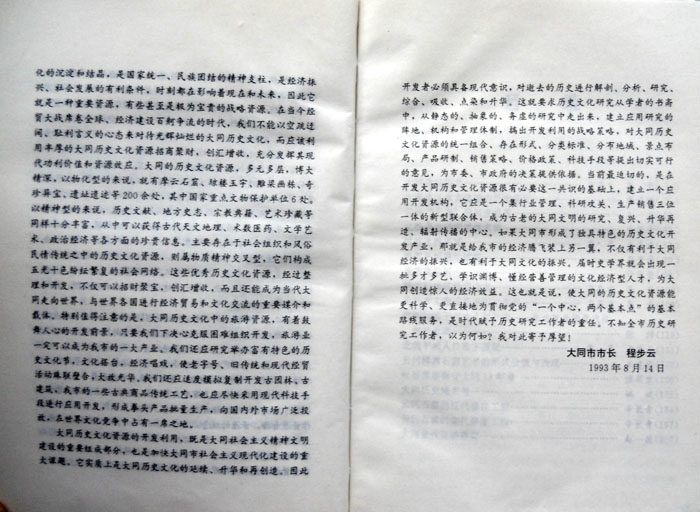 化的沉淀和结晶，是国家统一、民族团结的精神支柱，是经济振
兴、社会发展的有利条件，时刻都在影响着现在和未来，因此它
就是一种重要资源，有些甚至是极为宝贵的战略资源，在当今经
贸大战席卷全球、经济建设百舸争流的时代，我们不能以空疏迂
阔、耻利言义的心态来对待光辉灿烂的大同历史文化，而应该利
用丰厚的大同历史文化资源招商聚财，创汇增收，充分发挥其现
代功利价值和资源效应。大同的历史文化资源，多元多层，博大
精深，以物化型的来说，就有摩云石窟、琼楼玉宇、雕梁画栋、奇
珍异宝、遗址遗迹等200余处，其中国家重点文物保护单位6处。
以精神型的来说，历史文献、地方史志、宗教典籍、艺术珍藏等
同样十分丰富，从中可以获得古代天文地理、术数医药、文学艺
术、政治经济等各方面的珍贵信息，主要存在于社会组织和风俗
民情传统之中的历史文化资源，则属物质精神交叉型，它们构成
五光十色绵亘繁复的社会网络。这些优秀历史文化资源，经过整
理和开发，不仅可以招财聚宝，创汇增收，而且还能成为当代大
同走向世界，与世界各国进行经济贸易和文化交流的重要媒介和
载体。特别值得注意的是，大同历史文化中的旅游资源，有着鼓
舞人心的开发前景，只要我们下决心克服困难组织开发，旅游业
一定可以成为我市的一大产业。我们还应研究举办富有特色的历
史文化节，文化搭台，经济唱戏，使老字号、旧传统和现代经贸
活动珠联璧合，大放光华。我们还应适度模拟复制开发古园林、古
建筑。我市的一些古典商品传统工艺，也应尽快采用现代科技手
段进行应用开发，形成拳头产品批量生产，向国内外市场广泛投
放，在世界文化竞争中占有一席之地。
大同历史文化资源的开发利用，既是大同社会主义精神文明
建设的重要组成部分，也是加快大同市社会主义现代化建设的重
大课题。它实质上是大同历史文化的延续、升华和再创造。因此
开发者必须具备现代意识，对逝去的历史进行解剖、分析、研究、
综合、吸收、点染和升华。这就要求历史文化研究从学者的书斋
中，从静态的、抽象的、务虚的研究中走出来，建立应用研究的
阵地、机构和管理体制，搞出开发利用的战略策略，对大同历史
文化资源的统一组合、存在形式、分类标准、分布地域、景点布
局、产品研制、销售策略、价格政策、科技手段等提出切实可行
的意见，为市委、市政府的决策提供依据。当前最迫切的，是在
开发大同历史文化资源很有必要这一共识的基础上，建立一个应
用开发机构，它应是一个集行业管理、科研攻关、生产销售三位
一体的新型联合体，成为古老的大同文明的研究、复兴、升华再
造、辐射传播的中心。如果大同市形成了独具特色的历史文化开
发产业，那就是给我市的经济腾飞装上另一翼，不仅有利于大同
经济的振兴，也有利于大同文化的振兴。届时史学界就会出现一
批多才多艺、学识渊博、懂经营善管理的文化经济型人才，为大
同创造惊人的经济效益。这也就是说，使大同的历史文化资源能
更科学、更直接地为贯彻党的“一个中心，两个基本点”的基本
路线服务，是时代赋于历史研究工作者的重任。不知全市历史研
究工作者，以为何如？我对此寄予厚望！
大同市市长 程步云
1993年8月14日